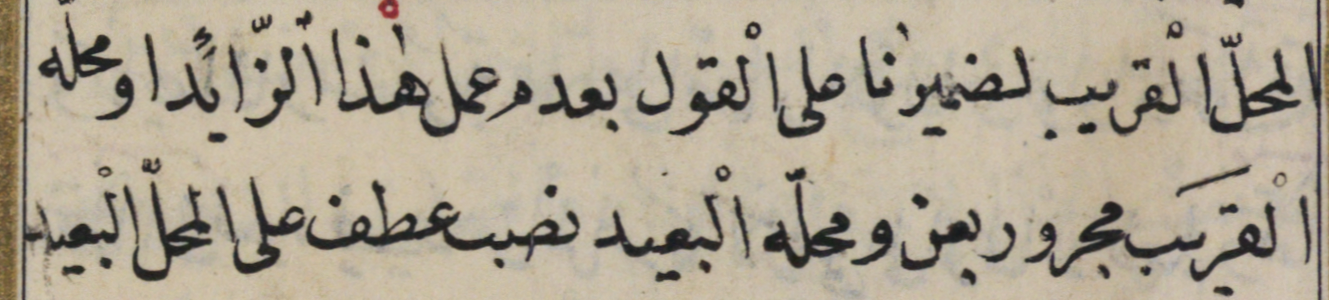 المحلّ الْقريب لضميرنا على الْقول بعدم عمل هٰذا الزّائد او محلّه
الْقريَب مجرور بعن ومحلّه الْبعيد نصب عطف على المحلّ الْبعيد